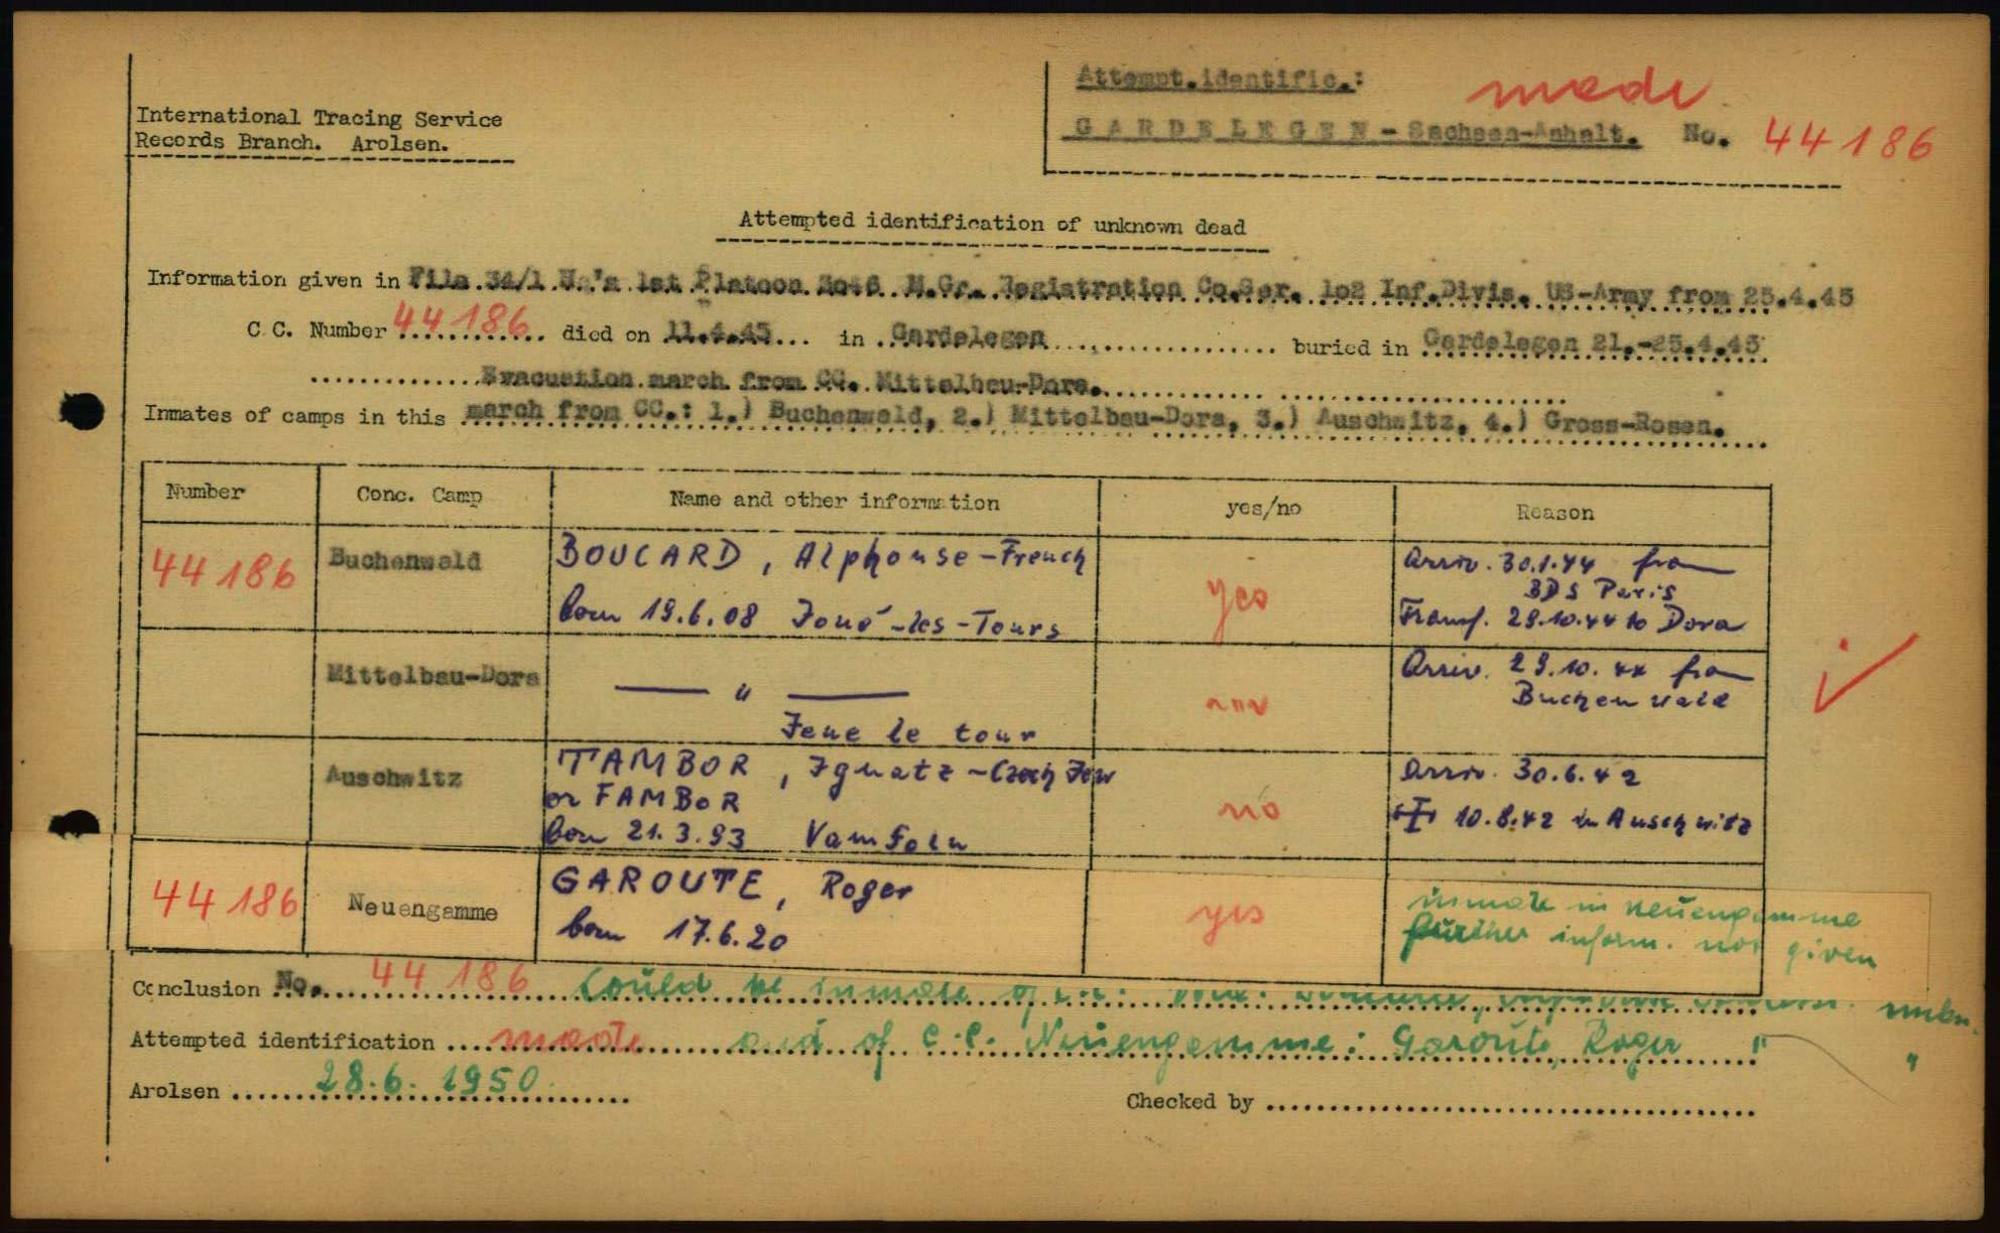 Attempt.identific.: made
International Tracing Service
Records Branch. Arolsen.
GARDELEGEN - Sachsen-Anhalt. No. 44186
Attempted identification of unknown dead
Information given in File 34/1 1st Platoon 3046 M.Gr. Registration Co.Ser. 1o2 Inf.Divis. US-Army from 25.4.45
C.C. Number 44186 died on 11.4.45 in Gardelegen buried in Gardelegen 21.-25.4.45
Evacuation march from CC. Mittelbau-Dora.
Inmates of camps in this march from CC.: 1.) Buchenwald, 2.) Mittelbau-Dora, 3.) Auschwitz, 4.) Gross-Rosen.
Number Conc. Camp Name and other information yes/no Reason
44186 Buchenwald BOUCARD, Alphonse - French yes Arriv. 30.1.44 from
BDS Paris
born 19.6.08 Joué-les-Tours Transf. 29.10.44 to Dora
Mittelbau-Dora — " — Arriv. 29.10.44 from
Buchenwald
Jeue le tour
Auschwitz TAMBOR, Ignatz - Czech Jew no Arriv. 30.6.42
or FAMBOR
born 21.3.93 10.8.42 in Auschwitz
44186 Neuengamme GAROUTE, Roger yes inmate in Neuengamme
born 17.6.20 further inform. not given
Conclusion No. 44186 Could be inmate of
Attempted identification made and of C.C. Neuengamme: Garoute, Roger " "
Arolsen 28.6.1950
Checked by